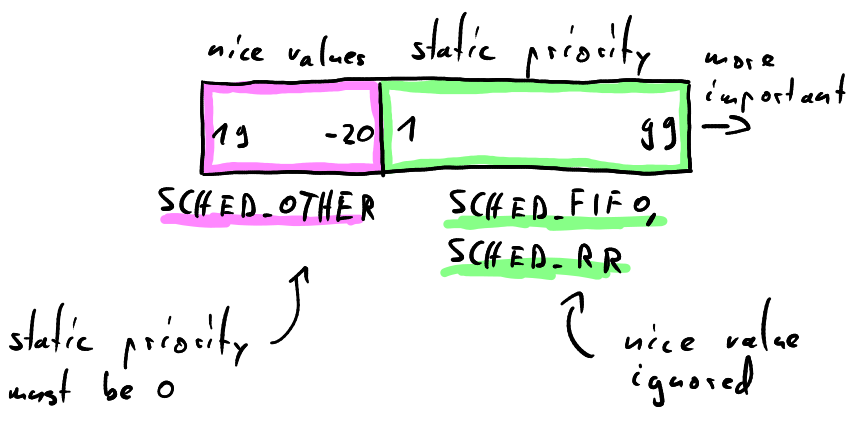 nice values
static priority
more
important
19
-20
1
99
SCHED_OTHER
SCHED_FIFO,
SCHED_RR
static priority
must be 0
nice value
ignored